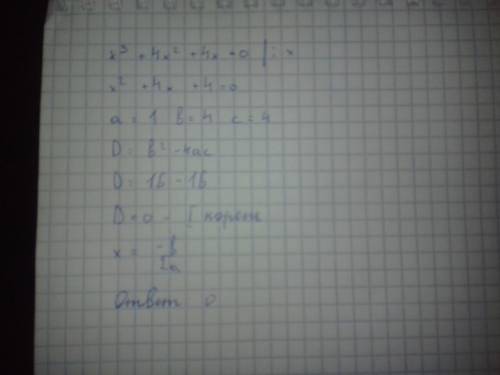 x³ + 4x² + 4x = 0 | : x
x² + 4x + 4 = 0
a = 1 b = 4 c = 4
D = b² - 4ac
D = 16 - 16
D = 0 - 1 корень
x = -b/2a
Ответ 0